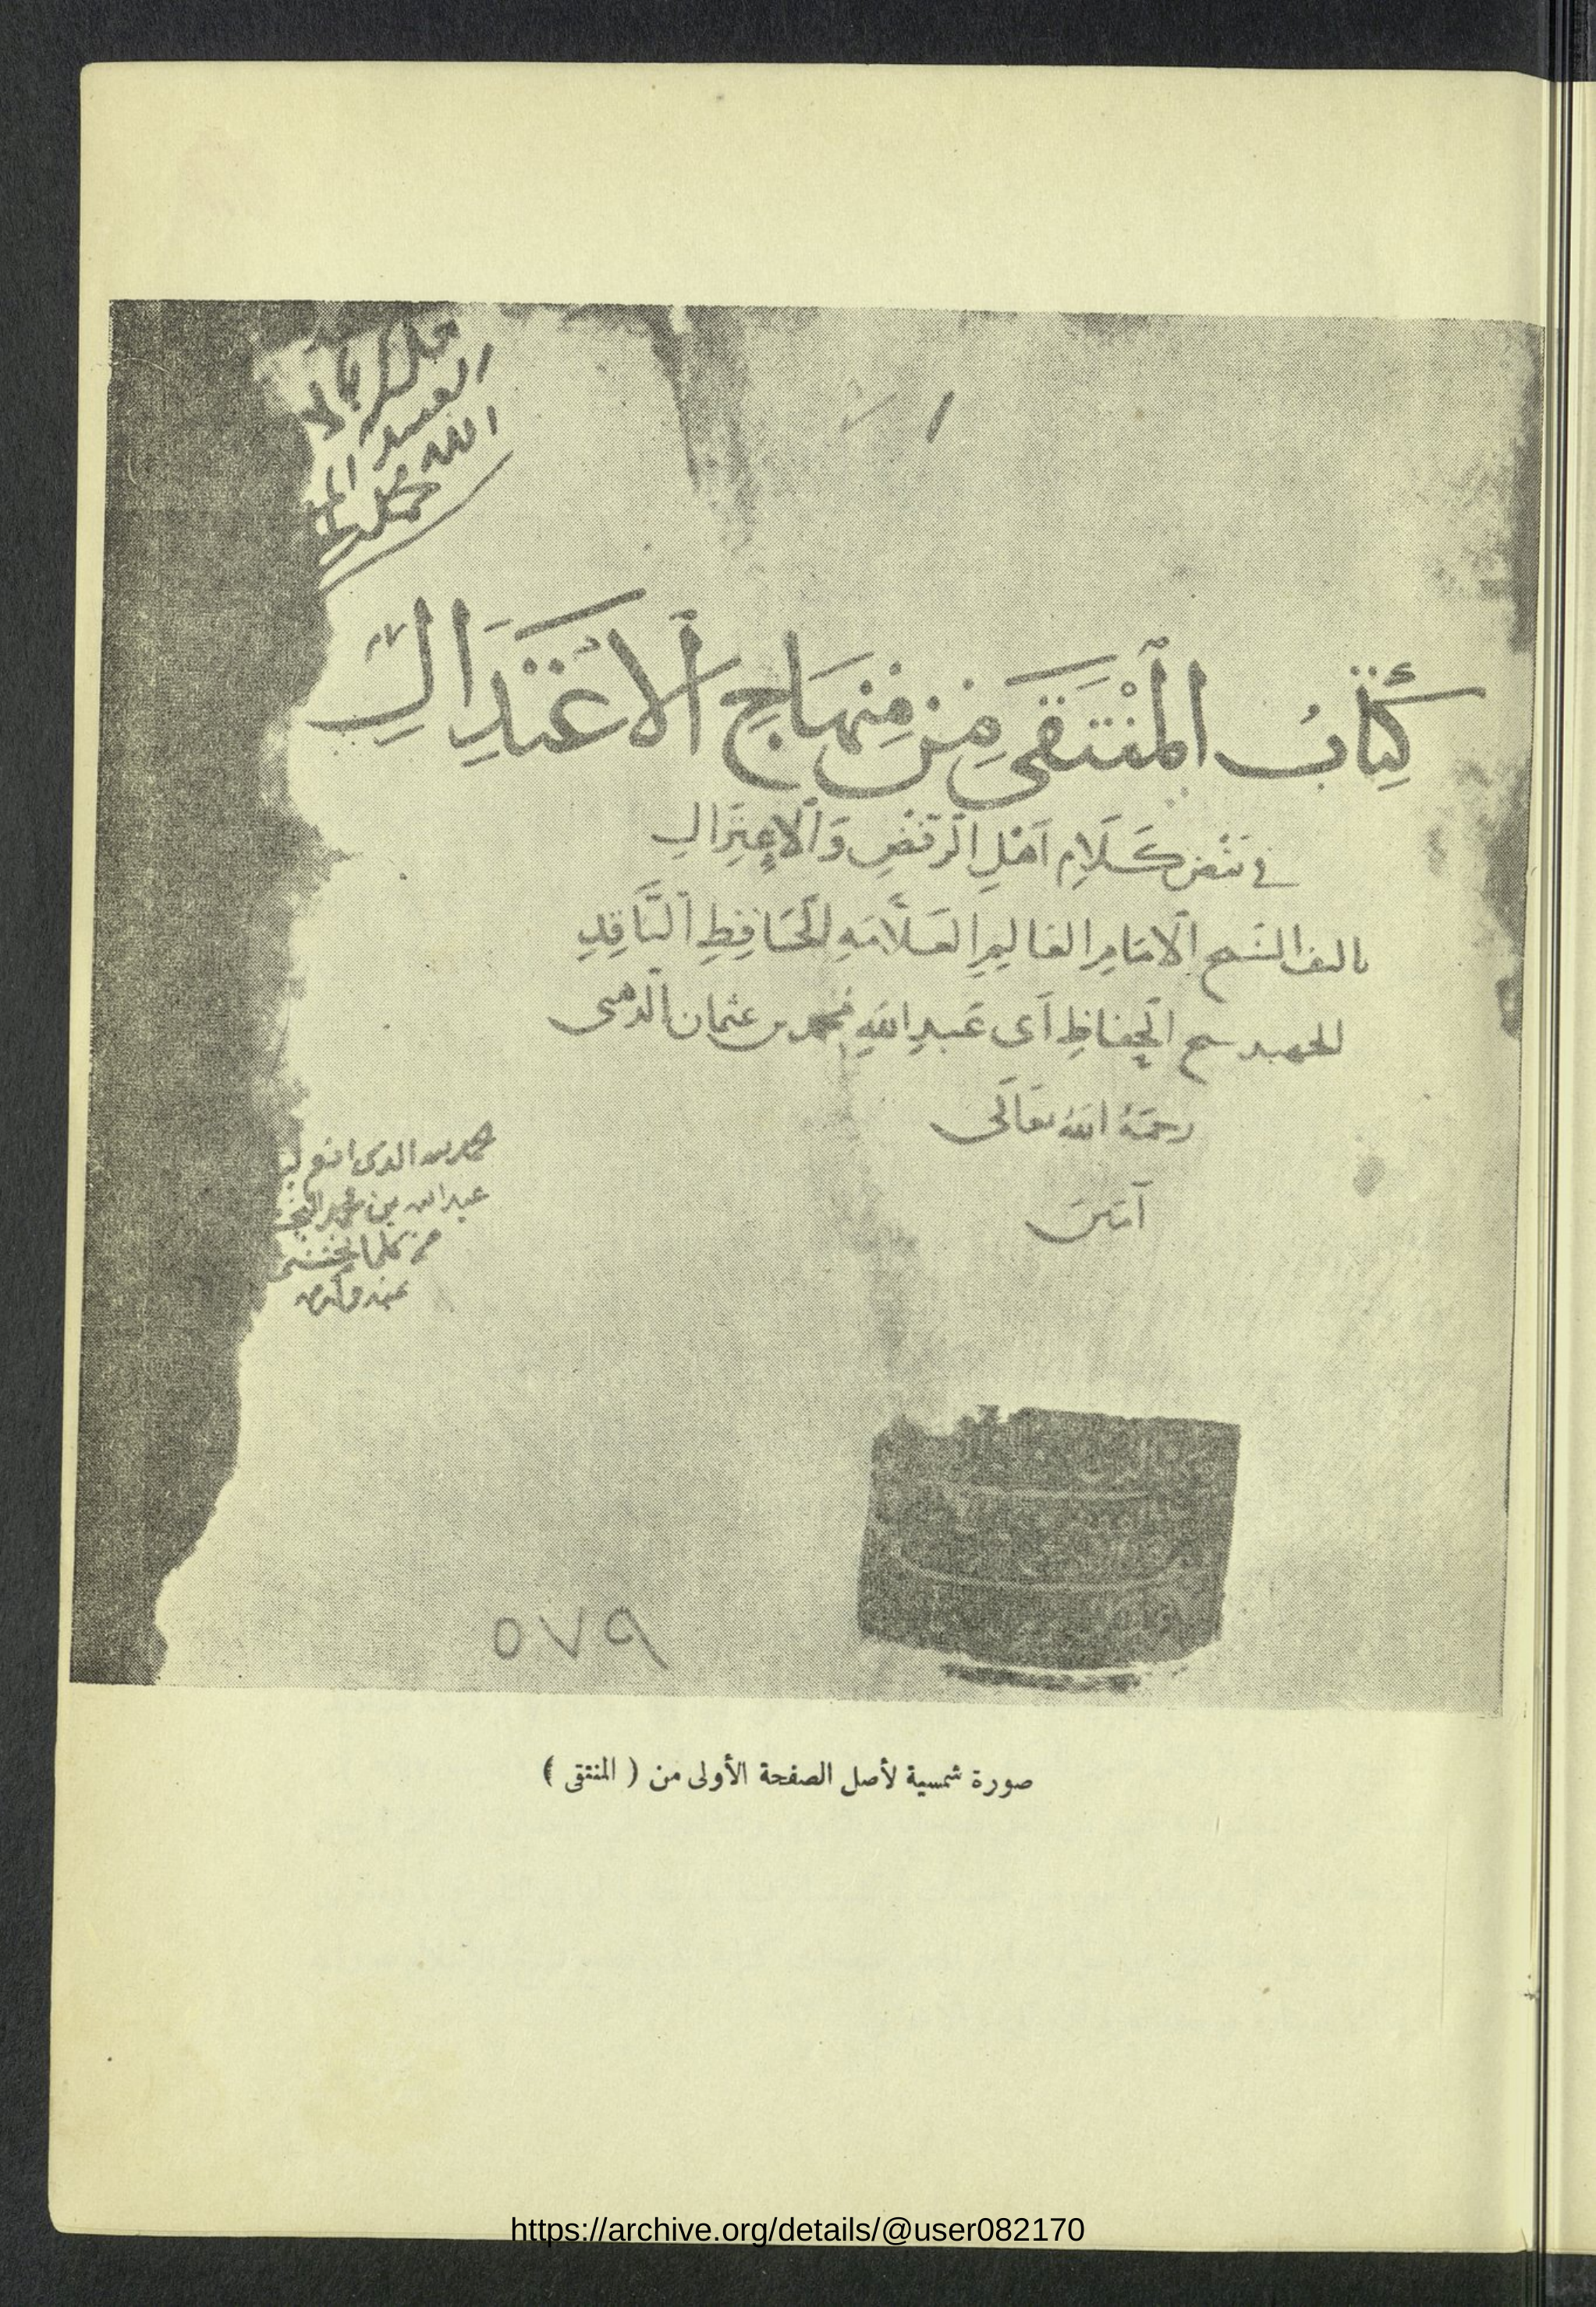 العبد
الله محمد
كِتَابُ الْمُنْتَقَى مِنْ مِنْهَاجِ الاعْتِدَالِ
في نقض كَلَامِ اَهْلِ الرفضِ وَالاعتِزَالِ
تالىف الشيخ الامَامِ العَالِمِ العَلَّامَةِ الحَافِظِ النَّاقِدِ
الجهبد شيخ الحفاظِ اَبى عَبدِ اللهِ محمد بن عثمان الذهبى
رحمَهُ اللهُ تعَالَى
آمين
الحمد لله الذى انعم
عبد الله بن محمد
٥٧٩
صورة شمسية لأصل الصفحة الأولى من ( المنتقى )
https://archive.org/details/@user082170